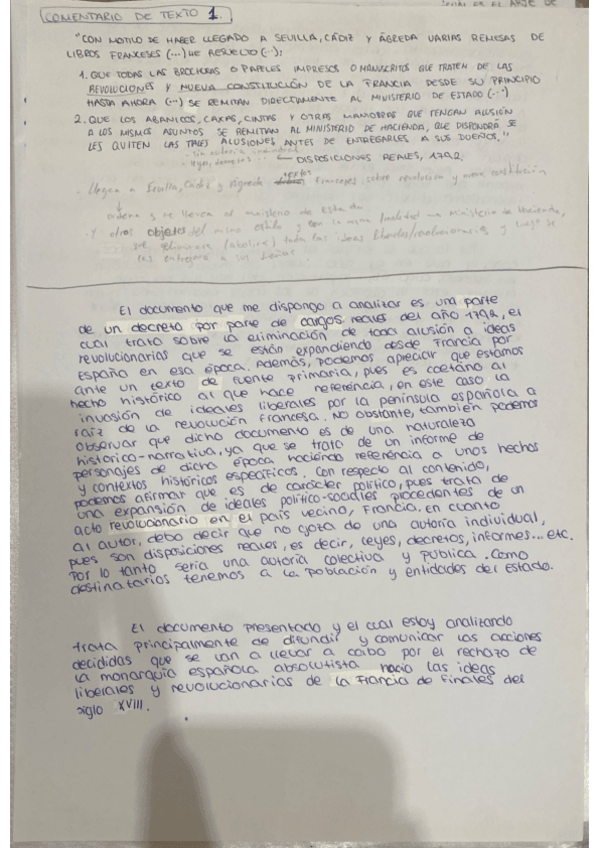 COMENTARIO DE TEXTO 1.
"CON MOTIVO DE HABER LLEGADO A SEVILLA, CÁDIZ Y ÁGREDA VARIAS REMESAS DE
LIBROS FRANCESES (...) HE RESUELTO (..):
1. QUE TODAS LAS BROCHURAS O PAPELES IMPRESOS O MANUSCRITOS QUE TRATEN DE LAS
REVOLUCIONES Y NUEVA CONSTITUCIÓN DE LA FRANCIA DESDE SU PRINCIPIO
HASTA AHORA (...) SE REMITAN DIRECTAMENTE AL MINISTERIO DE ESTADO (...)
2. QUE LOS ABANICOS, CAXAS, CINTAS Y OTRAS MANOBRAS QUE TENGAN ALUSIÓN
A LOS MISMOS ASUNTOS SE REMITAN AL MINISTERIO DE HACIENDA, QUE DISPONDRÁ SE
LES QUITEN LAS TALES ALUSIONES ANTES DE ENTREGARLES A SUS DUEÑOS."
- sin autoría individual
- leyes, decretos
DISPOSICIONES REALES, 1792.
- Llegan a Sevilla, Cádiz y Agreda textos franceses sobre revolucion y nueva constitución
ordena q se lleven al ministerio de Estado
- Y otros objetos del mismo estilo y con la misma finalidad un Ministerio de Hacienda,
todas las ideas liberales/revolucionarias y luego se
les entregara a sus dueños.
El documento que me dispongo a analizar es una parte
de un decreto por parte de cargos reales del año 1792, el
cual trata sobre la eliminación de toda alusión a ideas
revolucionarias que se están expandiendo desde Francia por
España en esa época. Además, podemos apreciar que estamos
ante un texto de fuente primaria, pues es coetáno al
hecho histórico al que hace referencia, en este caso la
invasión de ideales liberales por la península española a
raíz de la revolución francesa. No obstante, también podemos
observar que dicho documento es de una naturaleza
histórico-narrativa, ya que se trata de un informe de
personajes de dicha época haciendo referencia a unos hechos
y contextos históricos específicos. Con respecto al contenido,
podemos afirmar que es de carácter político, pues trata de
una expansión de ideales político-sociales procedentes de un
acto revolucionario en el país vecino, Francia. En cuanto
al autor, debo decir que no goza de una autoría individual,
pues son disposiciones reales, es decir, leyes, decretos, informes... etc.
Por lo tanto sería una autoría colectiva y pública. Como
destinatarios tenemos a la población y entidades del estado.
El documento presentado y el cual estoy analizando
trata principalmente de difundir y comunicar las acciones
decididas que se van a llevar a cabo por el rechazo de
la monarquía española absolutista hacia las ideas
liberales y revolucionarias de la Francia de finales del
siglo XVIII.